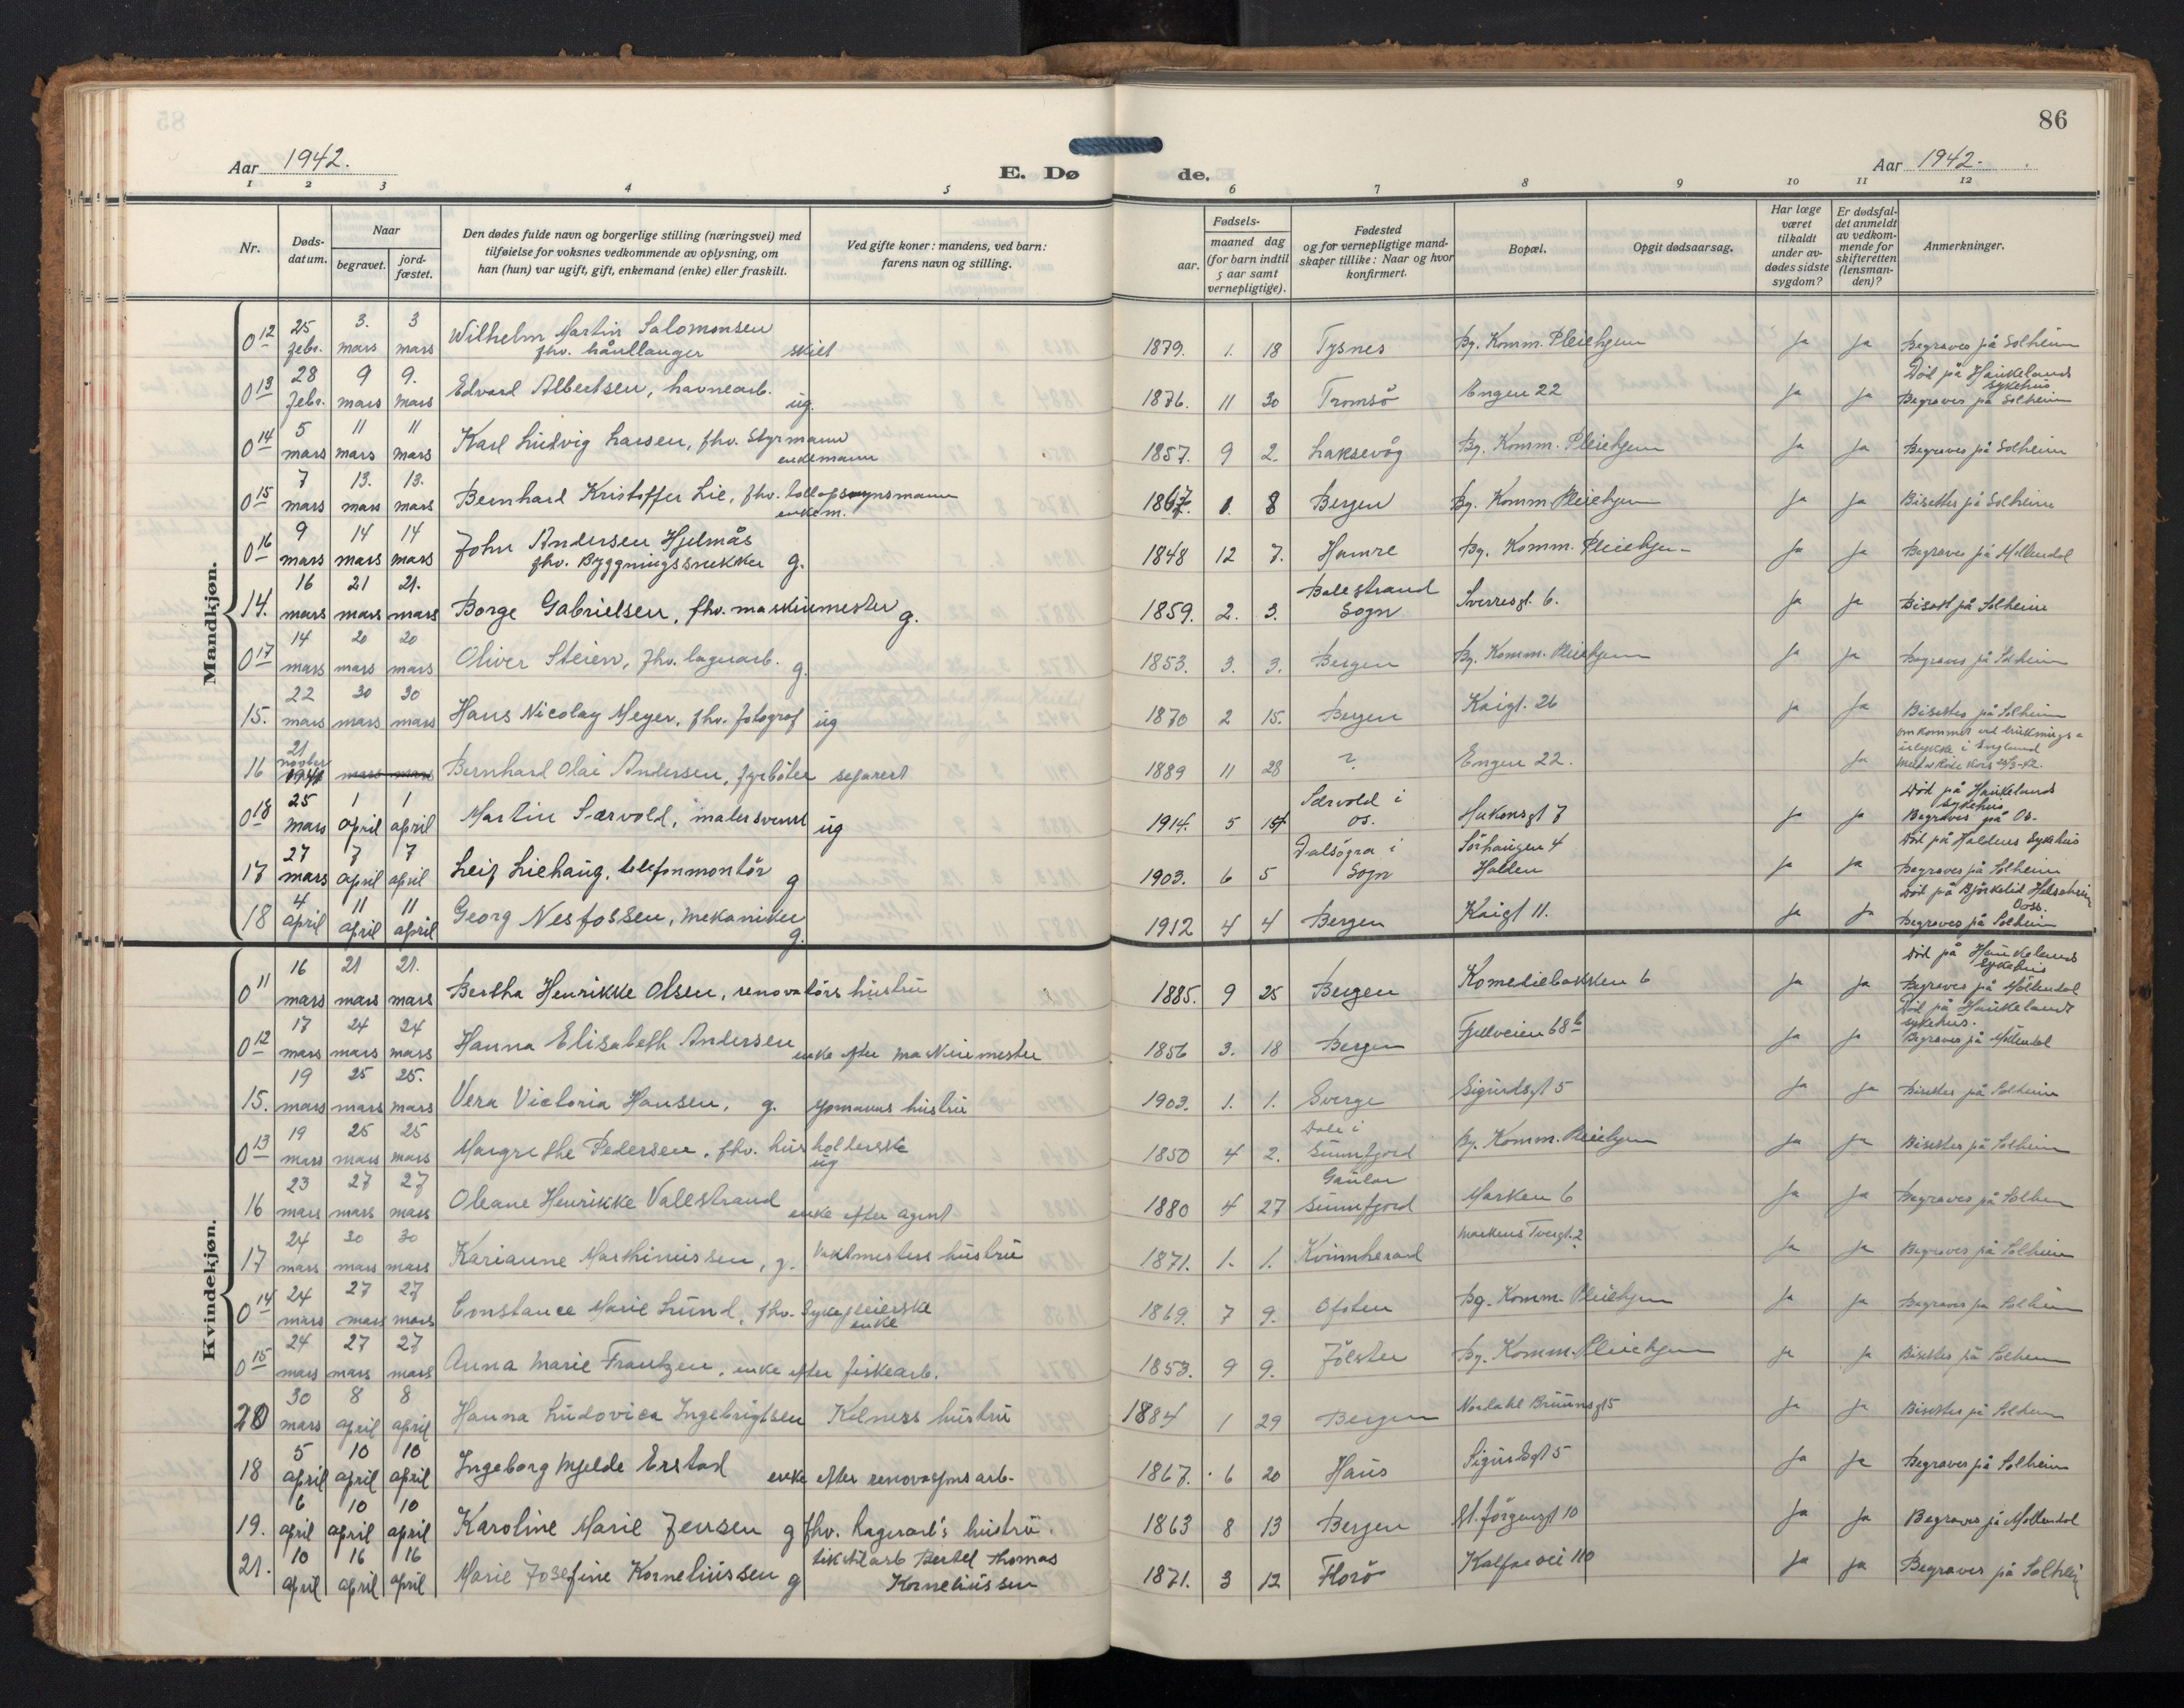 86
Aar 1942. E. Døde. Aar 1942.
1 2 3 4 5 6 7 8 9 10 11 12
Nr. Døds-datum. Naar begravet. jord-fæstet. Den dødes fulde navn og borgerlige stilling (næringsvei) med tilføielse for voksnes vedkommende av oplysning, om han (hun) var ugift, gift, enkemand (enke) eller fraskilt. Ved gifte koner: mandens, ved barn: farens navn og stilling. Fødsels- aar. maaned dag (for barn indtil 5 aar samt vernepligtige). Fødested og for vernepligtige mandskaper tillike: Naar og hvor konfirmert. Bopæl. Opgit dødsaarsag. Har læge været tilkaldt under avdødes sidste sygdom? Er dødsfaldet anmeldt av vedkommende for skifteretten (lensmanden)? Anmerkninger.
Mandkjøn.
0 12 25 febr. 3. mars 3 mars Wilhelm Martin Salomonsen fhv. hånllanger skilt 1879. 1. 18 Tysnes Bg. Komm. Pleiehjem Ja Ja Begraves på Solheim
0 13 28 febr. 9 mars 9. mars Edvard Albertsen, havnearb. ug. 1876. 11 30 Tromsö Engen 22 Ja Ja Död på Haukelands sykehus Begraves på Solheim
0 14 5 mars 11 mars 11 mars Karl Ludvig Larsen, fhv. Styrmann enkemann 1857. 9 2. Laksevåg Bg. Komm. Pleiehjem Ja Ja Begraves på Solheim
0 15 7 mars 13. mars 13. mars Bernhard Kristoffer Lie, fhv. tollopsynsmann enkem. 1867. 1. 8 Bergen Bg. Komm. Pleiehjem Ja Ja Bisettes på Solheim
0 16 9 mars 14 mars 14 mars John Andersen Hjelmås fhv. Byggningssnekker g. 1848 12 7. Hamre Bg. Komm. Pleiehjem Ja Ja Begraves på Møllendal
14. 16 mars 21 mars 21. mars Borge Gabrielsen, fhv. maskinmester g. 1859. 2. 3. Balestrand Sogn Sverresgt. 6. Ja Ja Bisatt på Solheim
0 17 14 mars 20 mars 20 mars Oliver Steien, fhv. lagerarb. g. 1853. 3. 3. Bergen Bg. Komm. Pleiehjem Ja Ja Begraves på Solheim
15. 22 mars 30 mars 30 mars Hans Nicolay Meyer, fhv. fotograf ug 1870 2 15. Bergen Kaigt. 26 Ja Ja Bisettes på Solheim
16 21 novber 1941 mars mars Bernhard Olai Andersen, fyrböter separert 1889 11 28 ? Engen 22. Ja omkommet ved drukningsulykke i England
0 18 25 mars 1 april 1 april Martin Særvold, malersvenn ug 1914. 5 Særvold i Os. Hakonsgt 7 Ja Ja Död på Haukelands sykehus Begraves på Os.
17 27 mars 7 april 7 april Leif Liehaug, telefonmontör g 1903. 6 5 Dalsögra i Sogn Sörhaugen 4 Halden Ja Ja Död på Haldens Sykehus Begraves på Solheim
18 4 april 11 april 11 april Georg Nesfossen, mekaniker g. 1912 4 4 Bergen Kaigt 11. Ja Ja Död på Björkelid Helseheim Voss. Begraves på Solheim
Kvindekjøn.
0 11 16 mars 21 mars 21. mars Bertha Henrikke Olsen, renovatörs hustru 1885. 9 25 Bergen Komediebakken 6 Ja Ja Död på Haukelands sykehus Begraves på Möllendal
0 12 17 mars 24 mars 24 mars Hanna Elisabeth Andersen enke efter maskinmester 1856 3. 18 Bergen Fjellveien 68 b Ja Ja Död på Haukelands sykehus. Begraves på Möllendal
15. 19 mars 25 mars 25. mars Vera Victoria Hansen, g. sjomanns hustru 1903. 1. 1. Sverge Sigurdsgt 5 Ja Ja Bisettes på Solheim
0 13 19 mars 25 mars 25 mars Margrethe Pedersen, fhv. husholderske ug 1850 4 2. Dale i Sunnfjord Bg. Komm. Pleiehjem Ja Ja Bisettes på Solheim
16 23 mars 27 mars 27 mars Oleane Henrikke Valestrand enke efter agent 1880 4 27 Gaular Sunnfjord Marken 6 Ja Ja Begraves på Solheim
17 24 mars 30 mars 30 mars Karianne Marthinussen, g. Vaktmesters hustru 1871. 1. 1. Kvinnherad Markens Tvergt. 2 Ja Ja Begraves på Solheim
0 14 24 mars 27 mars 27 mars Constance Marie Lund, fhv. Sykepleierske enke 1869. 7 9. Ofoten Bg. Komm. Pleiehjem Ja Ja Begraves på Solheim
0 15 24 mars 27 mars 27 mars Anna Marie Frantzen, enke efter fiskearb. 1853. 9 9. Jölster Bg. Komm. Pleiehjem Ja Ja Bisettes på Solheim
20 30 mars 8 april 8 april Hanna Ludovica Ingebrigtsen Kelners hustru 1884 1 29 Bergen Nordahl Bruunsgt 5 Ja Ja Bisettes på Solheim
18 5 april 10 april 10 april Ingeborg Mjelde Erstad enke efter renovasjonsarb. 1867. 6 20 Haus Sigurdsgt 5 Ja Ja Begraves på Solheim
19. 6 april 10 april 10 april Karoline Marie Jensen g fhv. lagerarb's hustru. 1863 8 13 Bergen St. Jörgensgt 10 Ja Ja Begraves på Möllendal
21. 10 april 16 april 16 april Marie Josefine Korneliussen g tekstilarb Bertel Thomas Korneliussen 1871. 3 12 Florö Kalfarvei 110 Ja Ja Begraves på Solheim